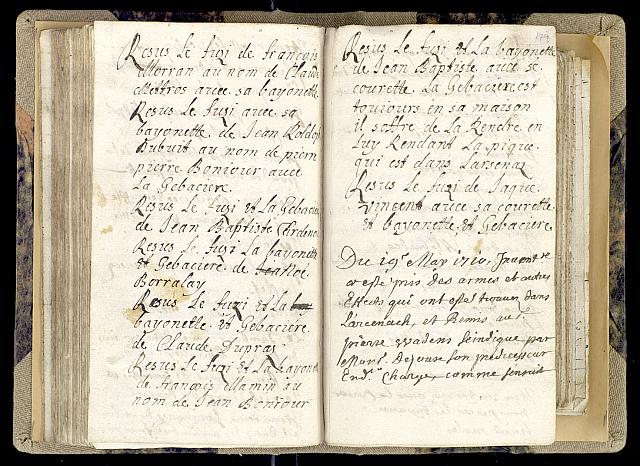 Resus Le fuzi de francois
Morran au nom de Claude
Mettros avec sa bayonette
Resus Le fuzi avec sa
bayonette de Jean
Bubuit au nom de piere
pierre Bonjour avec
La Gebaciere.
Resus Le fuzi et La Gebaciere
de Jean Baptiste
Resus Le fuzi La bayonette
et Gebaciere de
Borralay
Resus Le fuzi et La
bayonette et Gebaciere
de Claude Dupras
Resus Le fuzi et La bayonette
de francois Mamin au
nom de Jean Bonjour
174
Resus Le fuzi et La bayonette
de Jean Baptiste avec se
courette La Gebaciere est
toujours en sa maison
il soffre de La Rendre en
Luy Rendant La pique
qui est dans Larsenaz
Resus Le fuzi de Jaque
Vincent avec sa courette
et bayonette et Gebaciere
Du 19e May 1710.
este pris des armes et autres
Effects qui ont esté trouvez dans
Larcenach, et Remis au Sr
pierre seindique par
Monsr. son predecesseur
Endt. Charge, comme sensuit